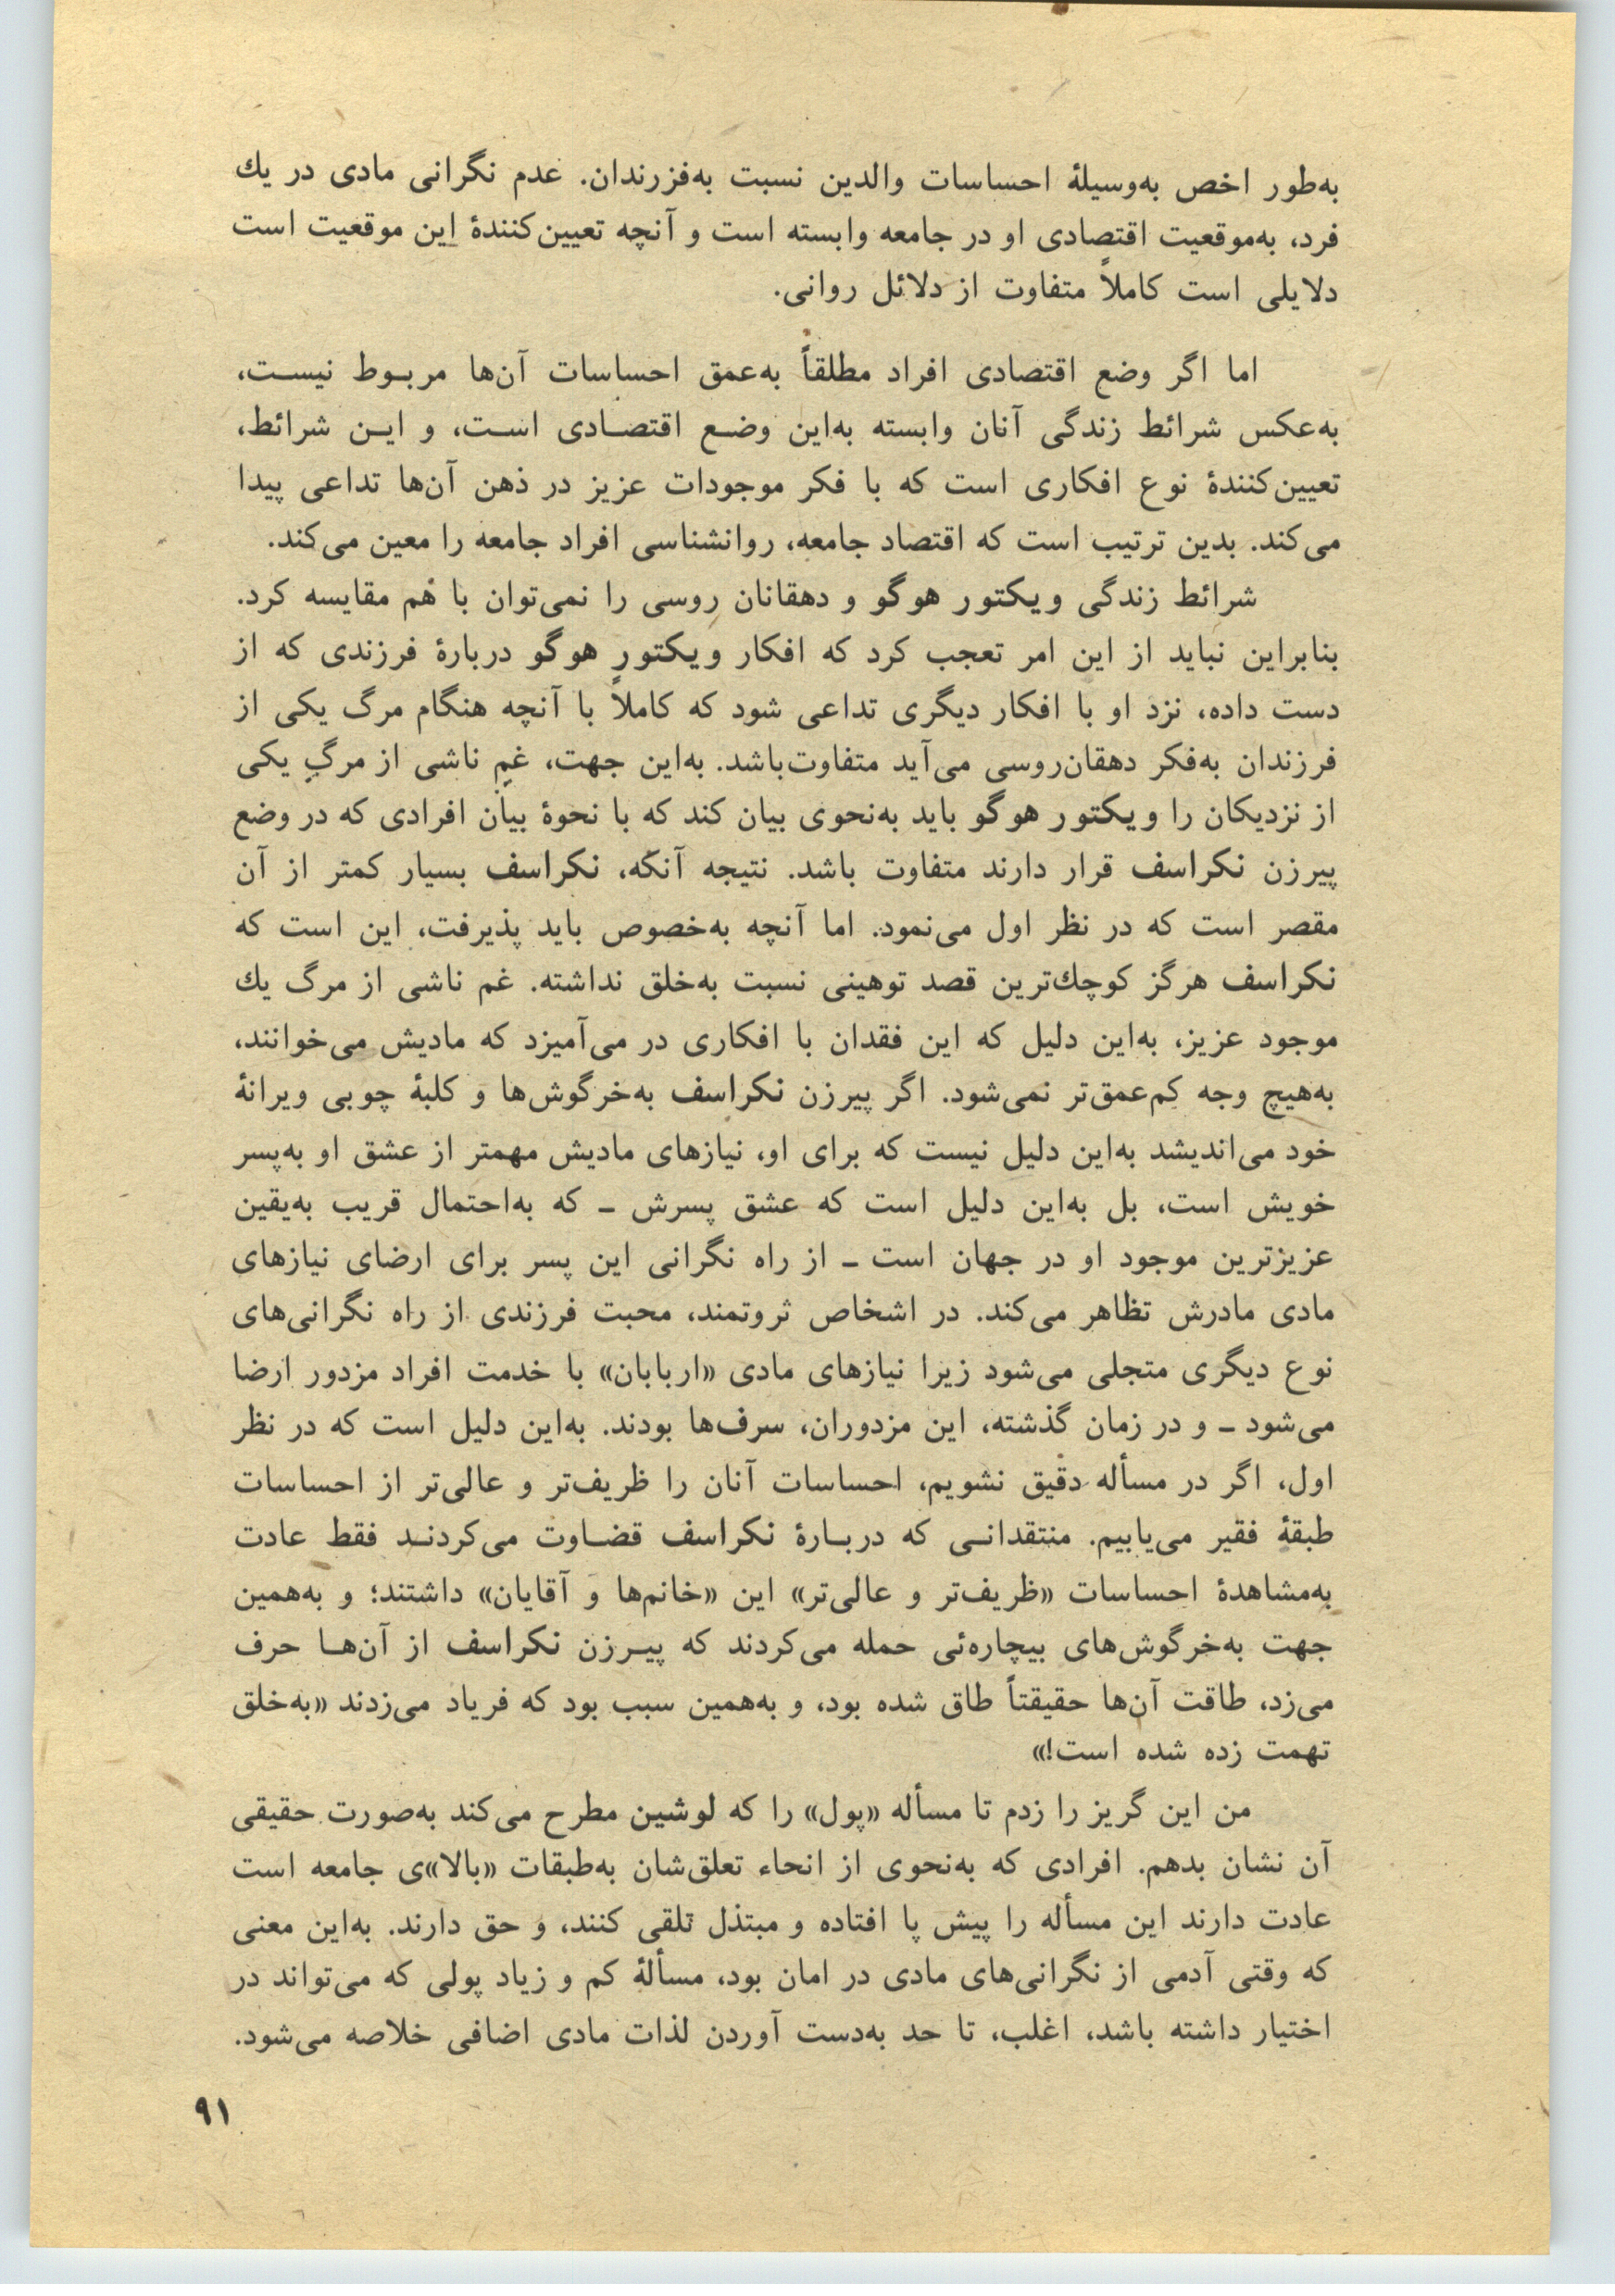 به‌طور اخص به‌وسیلهٔ احساسات والدین نسبت به‌فزرندان. عدم نگرانی مادی در یك
فرد، به‌موقعیت اقتصادی او در جامعه وابسته است و آنچه تعیین‌کنندهٔ این موقعیت است
دلایلی است کاملاً متفاوت از دلائل روانی.
اما اگر وضع اقتصادی افراد مطلقاً به‌عمق احساسات آن‌ها مربوط نیست،
به‌عکس شرائط زندگی آنان وابسته به‌این وضع اقتصادی است، و این شرائط،
تعیین‌کنندهٔ نوع افکاری است که با فکر موجودات عزیز در ذهن آن‌ها تداعی پیدا
می‌کند. بدین ترتیب است که اقتصاد جامعه، روانشناسی افراد جامعه را معین می‌کند.
شرائط زندگی ویکتور هوگو و دهقانان روسی را نمی‌توان با هم مقایسه کرد.
بنابراین نباید از این امر تعجب کرد که افکار ویکتور هوگو دربارهٔ فرزندی که از
دست داده، نزد او با افکار دیگری تداعی شود که کاملاً با آنچه هنگام مرگ یکی از
فرزندان به‌فکر دهقان‌روسی می‌آید متفاوت‌باشد. به‌این جهت، غمِ ناشی از مرگِ یکی
از نزدیکان را ویکتور هوگو باید به‌نحوی بیان کند که با نحوهٔ بیان افرادی که در وضع
پیرزن نکراسف قرار دارند متفاوت باشد. نتیجه آنکه، نکراسف بسیار کمتر از آن
مقصر است که در نظر اول می‌نمود. اما آنچه به‌خصوص باید پذیرفت، این است که
نکراسف هرگز کوچك‌ترین قصد توهینی نسبت به‌خلق نداشته. غم ناشی از مرگ یك
موجود عزیز، به‌این دلیل که این فقدان با افکاری در می‌آمیزد که مادیش می‌خوانند،
به‌هیچ وجه کم‌عمق‌تر نمی‌شود. اگر پیرزن نکراسف به‌خرگوش‌ها و کلبهٔ چوبی ویرانهٔ
خود می‌اندیشد به‌این دلیل نیست که برای او، نیازهای مادیش مهمتر از عشق او به‌پسر
خویش است، بل به‌این دلیل است که عشق پسرش ـ که به‌احتمال قریب به‌یقین
عزیزترین موجود او در جهان است ـ از راه نگرانی این پسر برای ارضای نیازهای
مادی مادرش تظاهر می‌کند. در اشخاص ثروتمند، محبت فرزندی از راه نگرانی‌های
نوع دیگری متجلی می‌شود زیرا نیازهای مادی «اربابان» با خدمت افراد مزدور ارضا
می‌شود ـ و در زمان گذشته، این مزدوران، سرف‌ها بودند. به‌این دلیل است که در نظر
اول، اگر در مسأله دقیق نشویم، احساسات آنان را ظریف‌تر و عالی‌تر از احساسات
طبقهٔ فقیر می‌یابیم. منتقدانی که دربارهٔ نکراسف قضاوت می‌کردند فقط عادت
به‌مشاهدهٔ احساسات «ظریف‌تر و عالی‌تر» این «خانم‌ها و آقایان» داشتند؛ و به‌همین
جهت به‌خرگوش‌های بیچاره‌ئی حمله می‌کردند که پیرزن نکراسف از آن‌ها حرف
می‌زد، طاقت آن‌ها حقیقتاً طاق شده بود، و به‌همین سبب بود که فریاد می‌زدند «به‌خلق
تهمت زده شده است!»
من این گریز را زدم تا مسأله «پول» را که لوشین مطرح می‌کند به‌صورت حقیقی
آن نشان بدهم. افرادی که به‌نحوی از انحاء تعلق‌شان به‌طبقات «بالا»ی جامعه است
عادت دارند این مسأله را پیش پا افتاده و مبتذل تلقی کنند، و حق دارند. به‌این معنی
که وقتی آدمی از نگرانی‌های مادی در امان بود، مسألهٔ کم و زیاد پولی که می‌تواند در
اختیار داشته باشد، اغلب، تا حد به‌دست آوردن لذات مادی اضافی خلاصه می‌شود.
۹۱